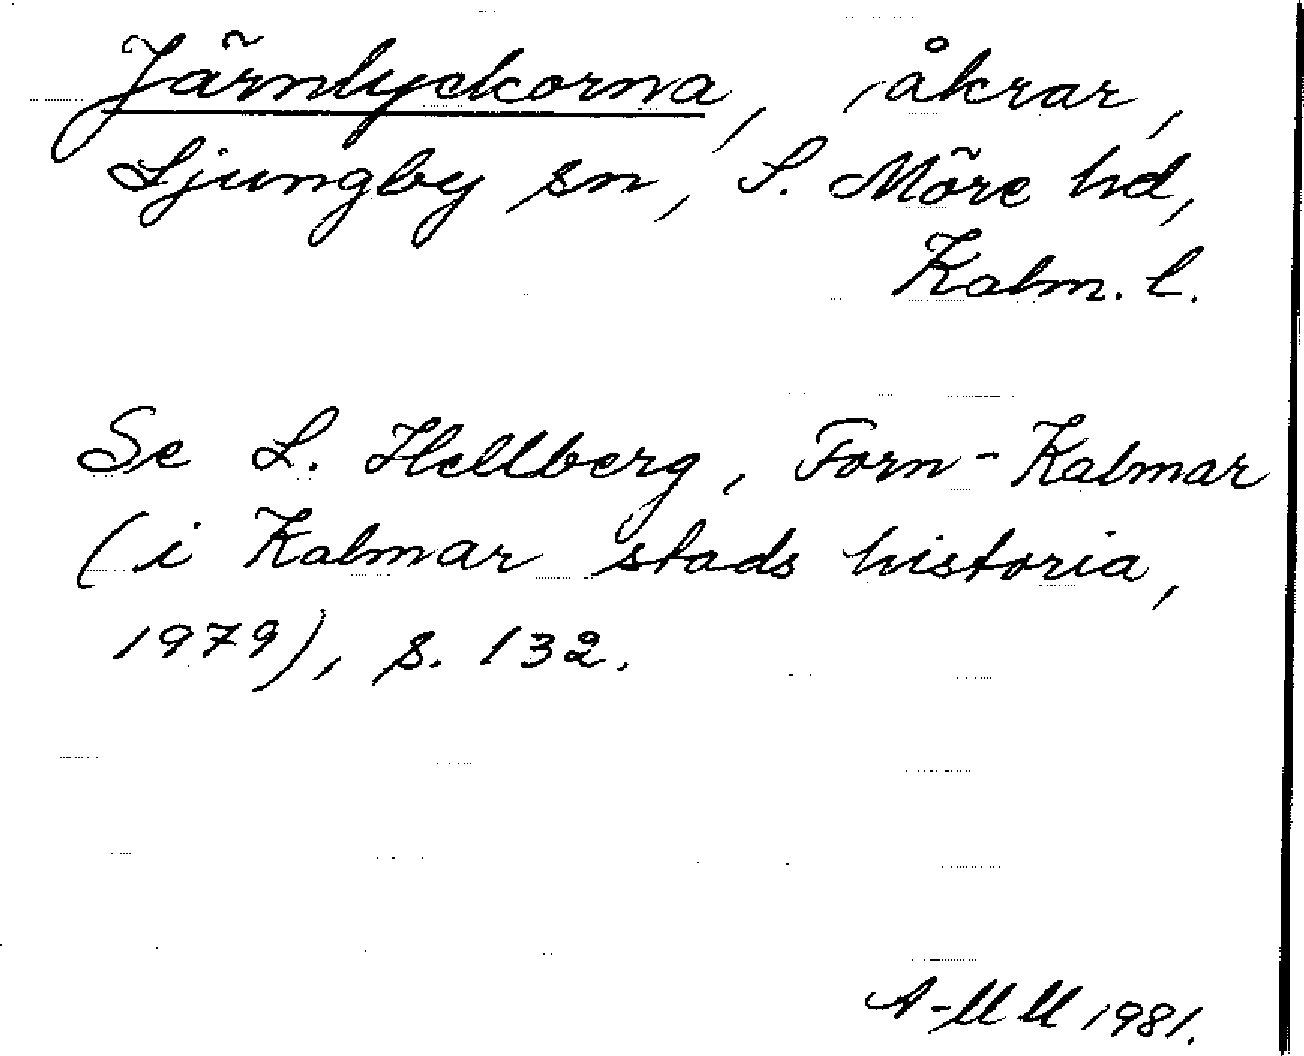 Järnlyckorna, åkrar,
Ljungby sn, S. Möre hd,
Kalm. l.
Se L. Hellberg, Forn-Kalmar
(i Kalmar stads historia,
1979), s. 132.
A-MM 1981.